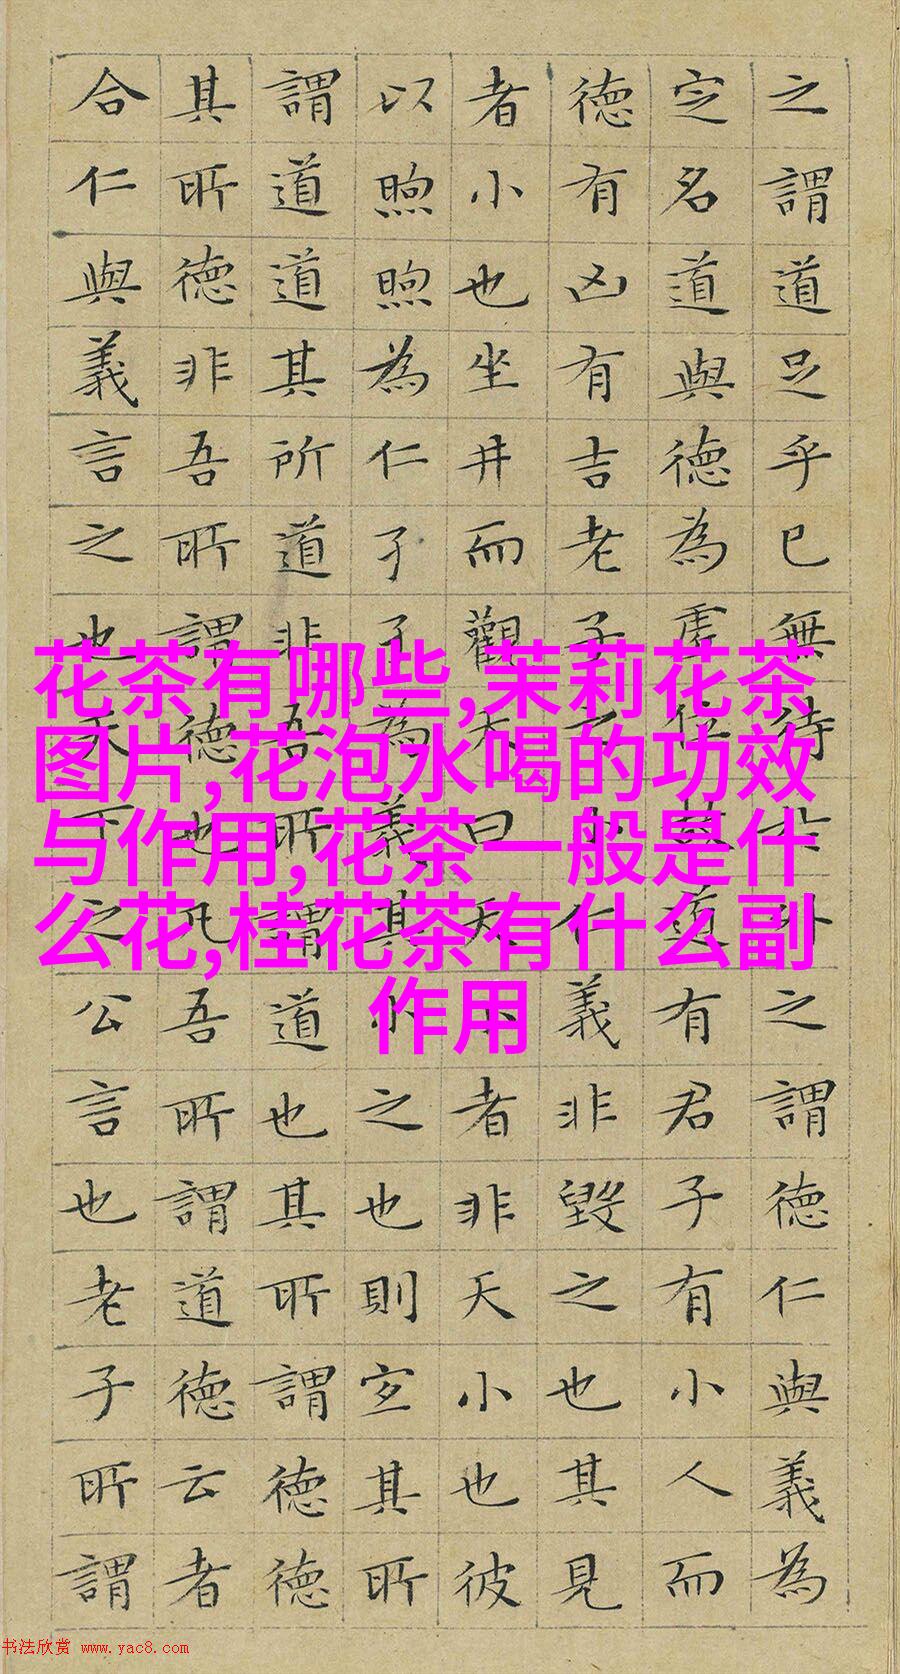 之謂道足乎已無待於外之謂德仁與義為
定名道與德為虛位故道有君子有小人而
德有凶有吉老子之小仁義非毀之也其見
者小也坐井而觀天曰天小者非天小也彼
以煦煦為仁孑孑為義其小之也則宜其所
謂道道其所道非吾所謂道也其所謂德德
其所德非吾所謂德也凡吾所謂道德云者
合仁與義言之也天下之公言也老子所謂
花茶有哪些,茉莉花茶
图片,花泡水喝的功效
与作用,花茶一般是什
么花,桂花茶有什么副
作用
书法欣赏 www.yac8.com